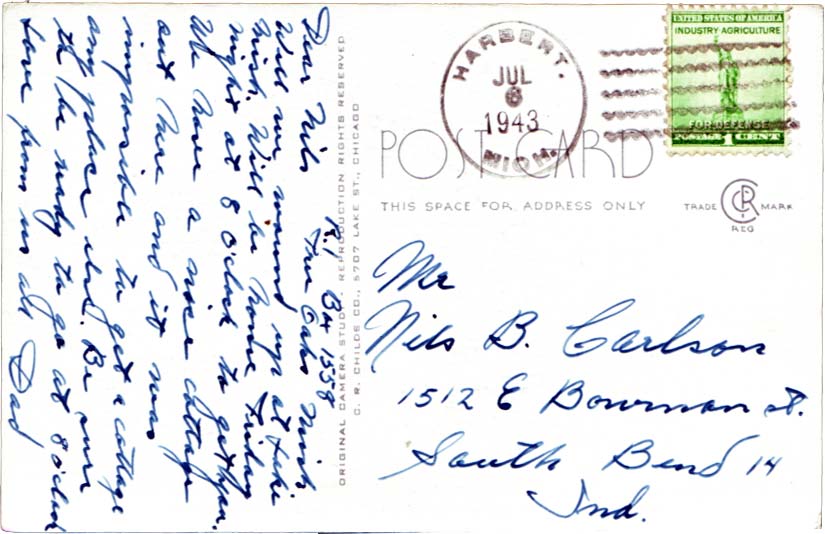 R.1 Box 1558
Three Oaks Mich.
Dear Nils
Will my wound up at Lake
Mich. Will be home Friday
night at 8 o'clock to get you.
We have a nice cottage
out here and it was
impossible to get a cottage
any place else. Be sure
to be ready to go at 8 o'clock
Love from us all Dad
ORIGINAL CAMERA STUDY. REPRODUCTION RIGHTS RESERVED
C. R. CHILDS CO., 5707 LAKE ST., CHICAGO
HARBERT.
JUL
6
1943
MICH.
UNITED STATES OF AMERICA
INDUSTRY AGRICULTURE
FOR DEFENSE
POSTAGE 1 CENT
POST CARD
THIS SPACE FOR ADDRESS ONLY
TRADE CRC MARK
REG
Mr
Nils B. Carlson
1512 E Bowman st.
South Bend 14
Ind.